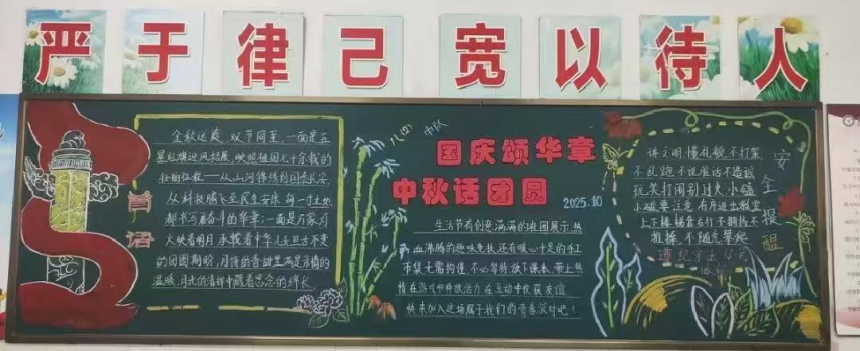 严于律己宽以待人
首语
金秋送爽 双节同至，一面是五
星红旗迎风招展，映照祖国七十余载的
壮丽征程——从山河锦绣到国泰民安，
从科技腾飞至民生安康，每一寸土地
都书写着奋斗的华章；一面是万家灯
火映着明月，承载着中华儿女亘古不变
的团圆期盼，月饼的香甜里满是亲情的
温暖，月光的清辉中藏着思念的绵长
八(2) 中队
国庆颂华章
中秋话团圆
2025.10
生活节有创意满满的班园展示，热
血沸腾的趣味竞技，还有暖心十足的手工
市集 无需 不必等待 放下课本，带上热
情 在游戏中释放活力 在互动中收获友谊
快来加入这场属于我们的青春派对吧！
讲文明，懂礼貌 不打架
不乱跑 不说脏话 不造谣
玩笑打闹别过火，小磕
小碰要注意 有序进出教室
上下楼梯靠右行 不拥挤不
推搡 不随意攀爬
安全提醒